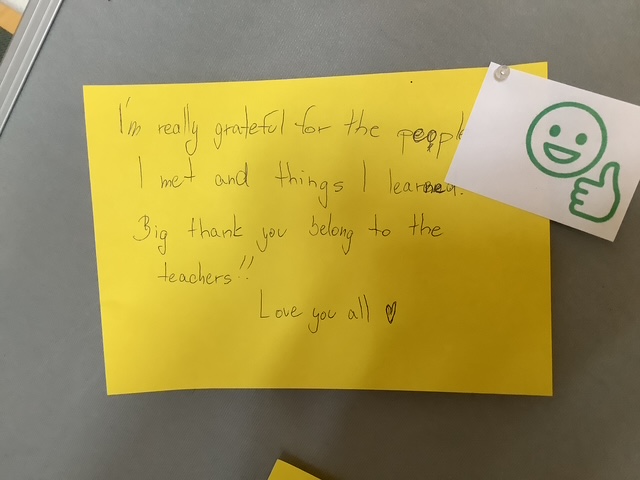 I'm really grateful for the people
I met and things I learned.
Big thank you belong to the
teachers!!
Love you all ♡